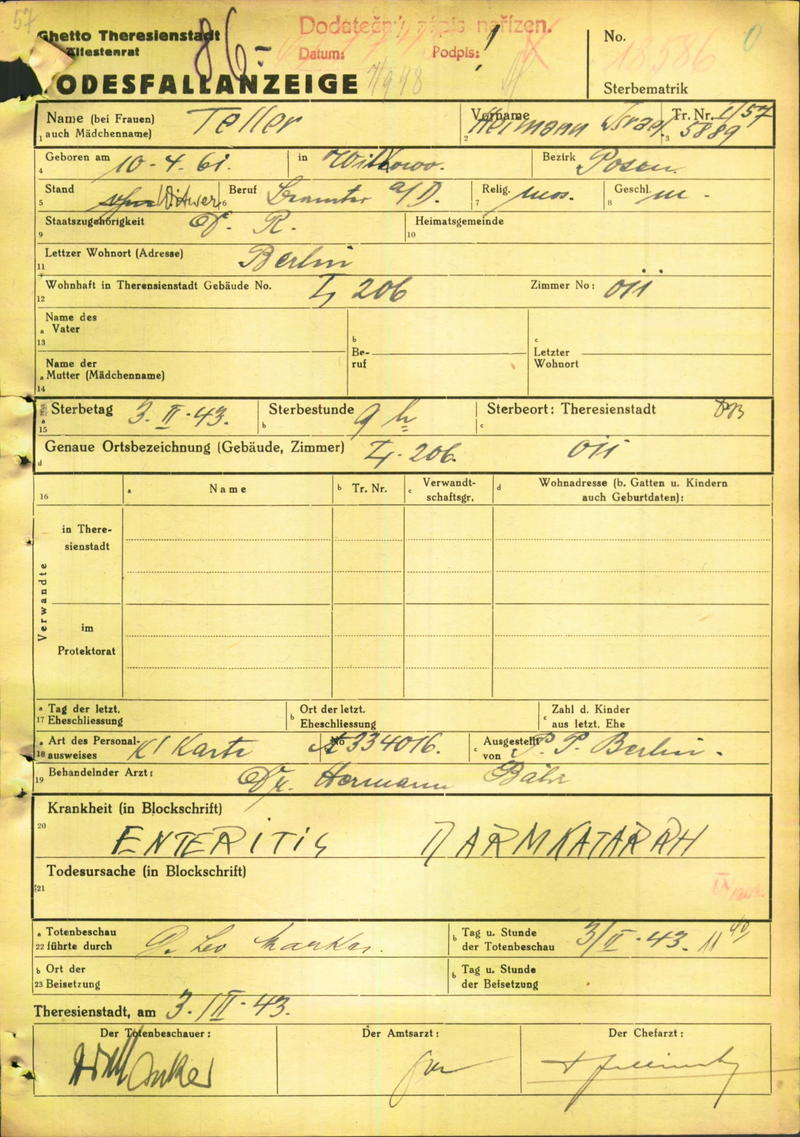 57
Ghetto Theresienstadt
Ältestenrat
86.-
Dodatečný zápis nařízen.
Datum:
Podpis:
No. 18586
Sterbematrik
TODESFALLANZEIGE
Name (bei Frauen) Teller
1 auch Mädchenname)
Vorname Hermann Israel
2
Tr. Nr. I/57
3 5889
Geboren am 10-4.61. in Witkowo. Bezirk Posen.
4
Stand Witwer Beruf Beamter a/D. Relig. mos. Geschl. m-
5 6 7 8
Staatszugehörigkeit D. R. Heimatsgemeinde
9 10
Lettzer Wohnort (Adresse) Berlin
11
Wohnhaft in Therensienstadt Gebäude No. L 206 Zimmer No: 011
12
Name des
a Vater
13
b Be-
ruf
c Letzter
Wohnort
Name der
a Mutter (Mädchenname)
14
Sterbetag 3. II-43. Sterbestunde 9 h Sterbeort: Theresienstadt
15 a b c
Genaue Ortsbezeichnung (Gebäude, Zimmer) L-206. 011
d
16 a Name b Tr. Nr. c Verwandt-
schaftsgr. d Wohnadresse (b. Gatten u. Kindern
auch Geburtdaten):
Verwandte
in There-
sienstadt
im
Protektorat
a Tag der letzt.
17 Eheschliessung
b Ort der letzt.
Eheschliessung
c Zahl d. Kinder
aus letzt. Ehe
a Art des Personal-
18 ausweises K' Karte
b No A 334016.
c Ausgestellt
von P. P. Berlin.
19 Behandelnder Arzt: Dr. Hermann Bähr
Krankheit (in Blockschrift)
20
ENTERITIS DARMKATARRH
Todesursache (in Blockschrift)
21
a Totenbeschau
22 führte durch Dr. Leo
b Tag u. Stunde
der Totenbeschau 3/II-43. 11 40
b Ort der
23 Beisetzung
b Tag u. Stunde
der Beisetzung
Theresienstadt, am 3./II-43.
Der Totenbeschauer:
Der Amtsarzt:
Der Chefarzt: